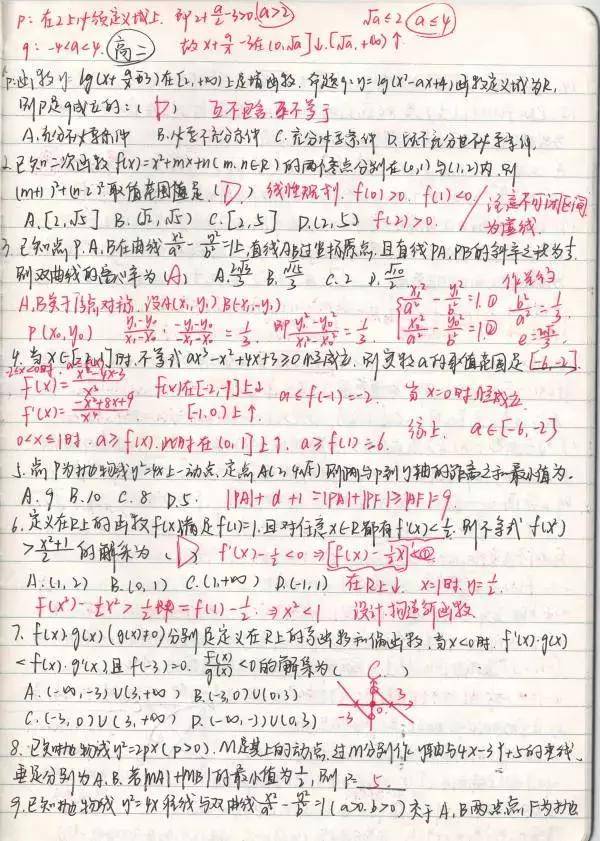 P: 在2上必须定义域上. 即2+a/2-3>0 (a>2) √a≤2 (a≤4)
q: -4<a<4. 高二 故x+a/x-3在(0,√a]↓.[√a,+∞)↑
函数y=lg(x+a/x-3)在[2,+∞)上是增函数. 命题q:y=lg(x²-ax+4)函数定义域为R,
则P是q成立的:( D ) 互不包含.互不等于
A.充分不必要条件 B.必要不充分条件 C.充分必要条件 D.既不充分也不必要条件.
2.已知二次函数f(x)=x²+mx+n(m.n∈R)的两个零点分别在(0,1)与(1,2)内.则
(m+1)²+(n-2)²取值范围是(D) 线性规划. f(0)>0. f(1)<0 / 注意不可闭区间
A.[2,√5] B.(√2,√5) C.[2,5] D.(2,5) f(2)>0. 为虚线.
3.已知点P.A.B在曲线x²/a²-y²/b²=1上.直线AB过坐标原点.且直线PA.PB的斜率之积为1/3.
则双曲线的离心率为(A) A.2√3/3 B.√15/3 C.2 D.√10/2 作差约
A.B关于原点对称.设A(x₁,y₁) B(-x₁,-y₁) { x₁²/a²-y₁²/b²=1.① b²/a²=1/3.
P(x₀,y₀) y₁-y₀/x₁-x₀ · -y₁-y₀/-x₁-x₀ = 1/3. 即 y₁²-y₀²/x₁²-x₀² = 1/3. x₀²/a²-y₀²/b²=1② e=2√3/3
4.当x∈[-2,1]时.不等式ax³-x²+4x+3≥0恒成立.则实数a的取值范围是[-6,-2].
-2≤x<0时. a≤f(x)
f(x)=x²-4x-3/x³ f(x)在[-2,-1]上↓ a≤f(-1)=-2. 当x=0时恒成立.
f'(x)=-x²+8x+9/x⁴ [-1,0)上↑. 综上. a∈[-6,-2]
0<x≤1时. a≥f(x).此时在(0,1]上↑. a≥f(1)=-6.
5.点P为抛物线y²=4x上一动点.定点A(2,4√5)则PA与P到y轴的距离之和最小值为.
A.9 B.10 C.8 D.5. |PA|+d+1=|PA|+|PF|≥|AF|=9.
6.定义在R上的函数f(x)满足f(1)=1.且对任意x∈R都有f'(x)<1/2.则不等式f(x²)
>x²+1/2的解集为( D ) f'(x)-1/2<0⇒[f(x)-1/2x]'<0
A.(1,2) B.(0,1) C.(1,+∞) D.(-1,1) 在R上↓. x=1时.y=1/2.
f(x²)-1/2x²>1/2=f(1)-1/2.⇒x²<1 设计.构造新函数.
7.f(x).g(x)(g(x)≠0)分别是定义在R上的奇函数和偶函数.当x<0时.f'(x)·g(x)
<f(x)·g'(x).且f(-3)=0. f(x)/g(x)<0的解集为( C )
A.(-∞,-3)∪(3,+∞) B.(-3,0)∪(0,3) -3 0 3
C.(-3,0)∪(3,+∞) D.(-∞,-3)∪(0,3)
8.已知抛物线y²=2px(p>0).M是其上的动点.过M分别作y轴与4x-3y+5的垂线.
垂足分别为A.B.若|MA|+|MB|的最小值为1/2,则P= 5
9.已知抛物线y²=4x准线与双曲线x²/a²-y²/b²=1(a>0.b>0)交于A.B两点.点F为抛物